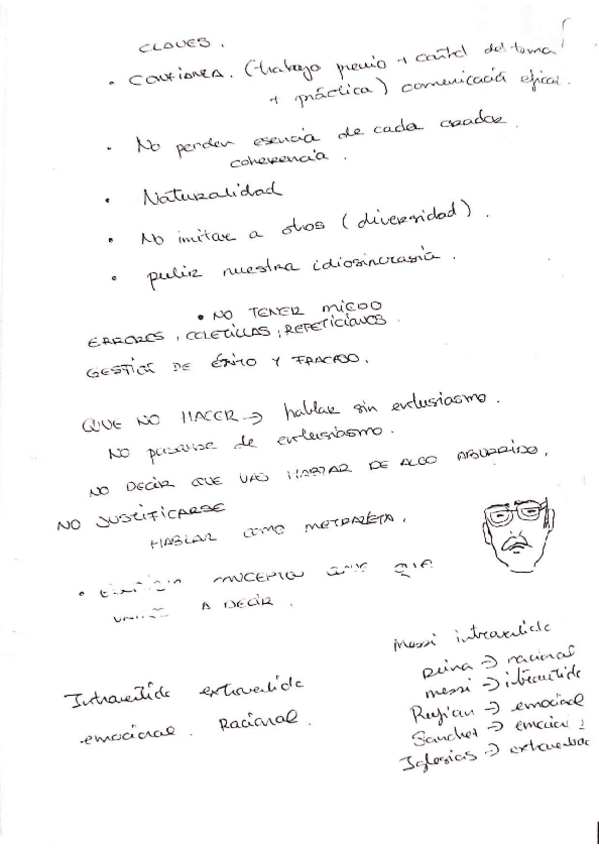 CLAVES.
• CONFIANZA. (trabajo previo + control del tema
+ práctica) comunicació eficaz.
• No perder esencia de cada orador.
coherencia.
• Naturalidad
• No imitar a otros (diversidad).
• pulir nuestra idiosincrasia.
• NO TENER MIEDO
ERRORES, COLETILLAS, REPETICIONES.
GESTIÓN DE ÉXITO Y FRACASO.
QUE NO HACER → hablar sin entusiasmo.
NO pasarse de entusiasmo.
NO DECIR QUE VAS HABLAR DE ALGO ABURRIDO.
NO JUSTIFICARSE
HABLAR COMO METRALLETA.
• QUE
A DECIR.
Messi introvertido
Reina → racional
Messi → introvertido
Rufian → emocional
Sanchez → emocional
Iglesias → extrovertido
Introvertido extrovertido
emocional. Racional.